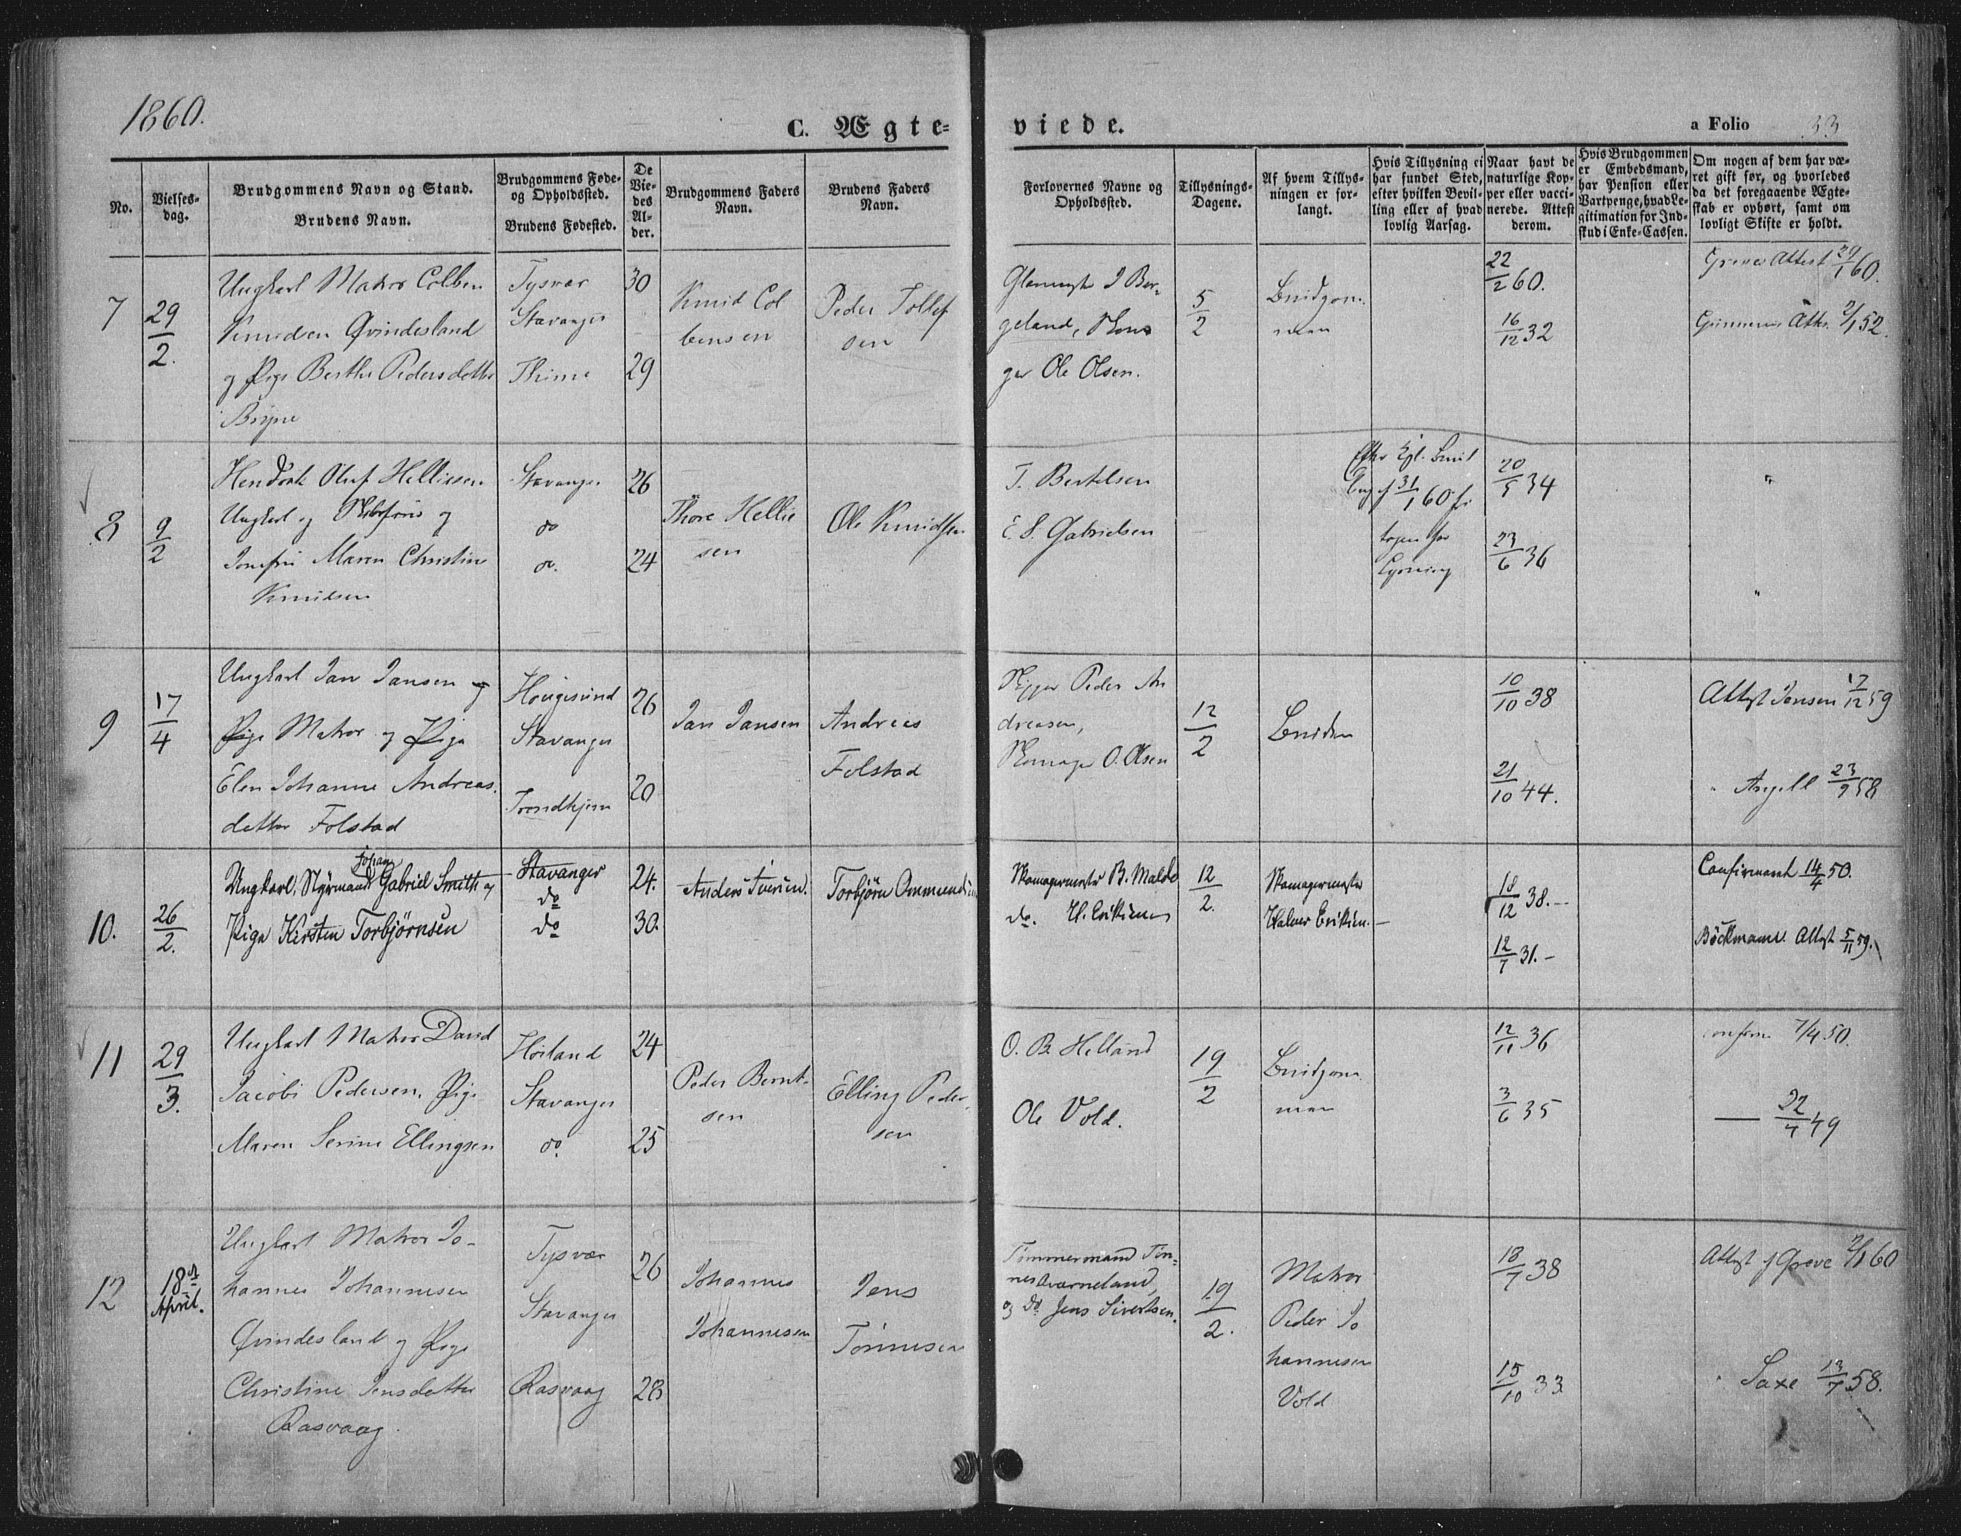 1860.
C. Ægte-
viede.
a Folio 33
No.
Vielses-
dag.
Brudgommens Navn og Stand.
Brudens Navn.
Brudgommens Føde-
og Opholdssted.
Brudens Fødested.
De
Vie-
des
Al-
der.
Brudgommens Faders
Navn.
Brudens Faders
Navn.
Forlovernes Navne og
Opholdssted.
Tillysnings-
Dagene.
Af hvem Tillys-
ningen er for-
langt.
Hvis Tillysning ei
har fundet Sted,
efter hvilken Bevil-
ling eller af hvad
lovlig Aarsag.
Naar havt de
naturlige Kop-
per eller vacci-
nerede. Attest
derom.
Hvis Brudgommen
er Embedsmand,
har Pension eller
Vartpenge, hvad Le-
gitimation for Ind-
skud i Enke-Cassen.
Om nogen af dem har væ-
ret gift før, og hvorledes
da det foregaaende Ægte-
skab er ophørt, samt om
lovligt Skifte er holdt.
7
29/2.
Ungkarl Matros Colben
Knudsen Øvindesland
og Pige Berthe Pedersdatter
Bryne
Tysvær
Stavanger
Thime
30
29
Knud Col
bensen
Peder Tollef
sen
I Ber-
geland,
Ole Olsen.
5/2
Brudgom
men
22/2 60.
16/12 32
Greves Attest 29/1 60.
2/1 52.
8
9/2
Hendrik Oluf Helliesen
Ungkarl og og
Jomfru Maren Christine
Knudsen
Stavanger
do
do.
26
24
Thore Hellie
sen
Ole Knudsen
T. Bertelsen
E. S. Gabrielsen
31/1 60
Lysning
20/5 34
23/6 36
"
"
9
17/4
Ungkarl Jan Jansen og
Pige Matros og Pige
Elen Johanne Andreas-
datter Folstad
Hougesund
Stavanger
Trondhjem
26
20
Jan Jansen
Andreas
Folstad
Skipper Peder An
dreasen,
O. Olsen
12/2
Bruden
10/10 38
21/10 44.
Attest Jensen 17/12 59
" Angell 23/9 58
10.
26/2.
Johan
Ungkarl, Styrmand Gabriel Smith og
Pige Kirsten Torbjørnsen
Stavanger
do
do
24.
30.
Anders Iversen.
Torbjørn Ommundsen
Skomagermester B. Malde
do. H. Eriksen
12/2.
Skomagermester
Halvor Eriksen. —
18/12 38. --
12/7 31. -
Confirmeret 14/4 50.
Böckmans Attest 5/11 59.
11
29/3.
Ungkarl Matros David
Jacobi Pedersen, Pige
Maren Serine Ellingsen
Høiland
Stavanger
do
24
25
Peder Bernt-
sen
Elling Peder
sen
O. B. Helland
Ole Vold.
19/2
Brudgom
men
12/11 36
3/6 35
confirm. 7/4 50.
— 22/4 49
12
18de
April.
Ungkarl Matros Jo-
hannes Johannesen
Øvindesland og Pige
Christine Jensdatter
Rasvaag
Tysvær
Stavanger
Rasvaag
26
28
Johannes
Johannesen
Jens
Tønnesen
Tømmermand Tøn-
nes Qværneland,
og do Jens Sivertsen.
19/2.
Matros
Peder Jo
hannesen
Vold
18/7 38
15/10 33
Attest f Greve 2/1 60
" Saxe 13/7 58.